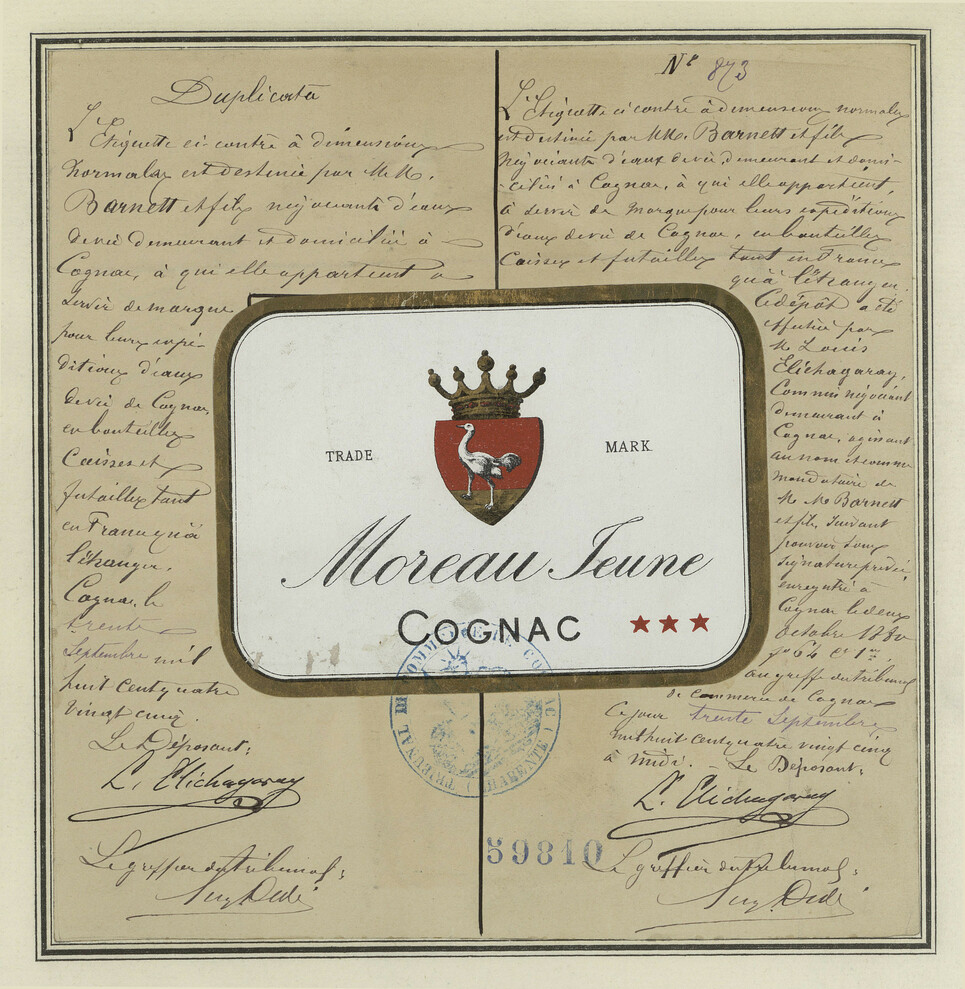 Duplicata
L'Etiquette ci-contre à dimensions
normales est destinée par M.M.
Barnett et fils négociants d'eaux
devie demeurant et domiciliés à
Cognac, à qui elle appartient à
servir de marque
pour leurs expé-
ditions d'eaux
devie de Cognac,
en bouteilles
Caisses et
futailles tant
en France qu'à
l'étranger.
Cognac, le
trente
Septembre mil
huit cent quatre
vingt cinq.
Le Déposant:
L. Elichagaray
Le greffier du tribunal:
Aug. Dedé
Nº 873
L'Etiquette ci contre à dimensions normales
est destinée par M.M. Barnett et fils
Négociants d'eaux devie, demeurant et domi-
-ciliés à Cognac, à qui elle appartient,
à servir de marque pour leurs expéditions
d'eaux devie de Cognac, en bouteilles
Caisses et futailles tant en France
qu'à l'étranger.
Le dépôt a été
effectué par
M. Louis
Elichagaray,
Commis négociant
demeurant à
Cognac, agissant
au nom et comme
mandataire de
M. M. Barnett
et fils, suivant
pouvoir sous
signature privée,
enregistré à
Cognac le deux
Octobre 1880
fº 62 cº 1re
au greffe du tribunal
de commerce de Cognac
Ce jour trente Septembre
mil huit cent quatre vingt cinq
à midi. - Le Déposant:
L. Elichagaray
Le greffier du tribunal:
Aug. Dedé
TRADE MARK
Moreau Jeune
COGNAC ★★★
TRIBUNAL DE COMMERCE COGNAC (CHARENTE)
59810